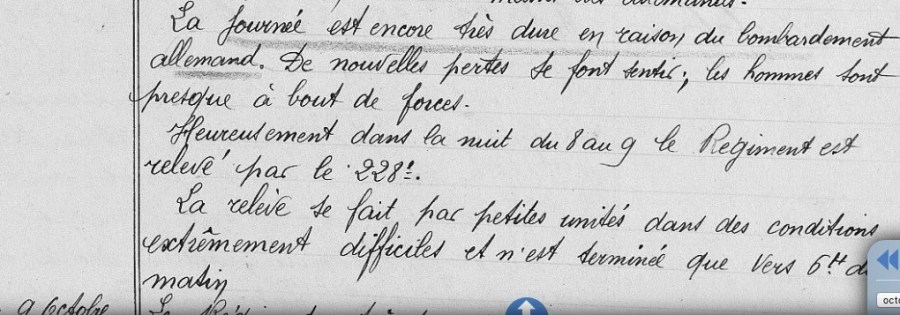 La journée est encore très dure en raison du bombardement
allemand. De nouvelles pertes se font sentir; les hommes sont
presque à bout de forces.
Heureusement dans la nuit du 8 au 9 le Régiment est
relevé par le 228e.
La relève se fait par petites unités dans des conditions
extrêmement difficiles et n'est terminée que vers 6H du
matin
9 Octobre
octo